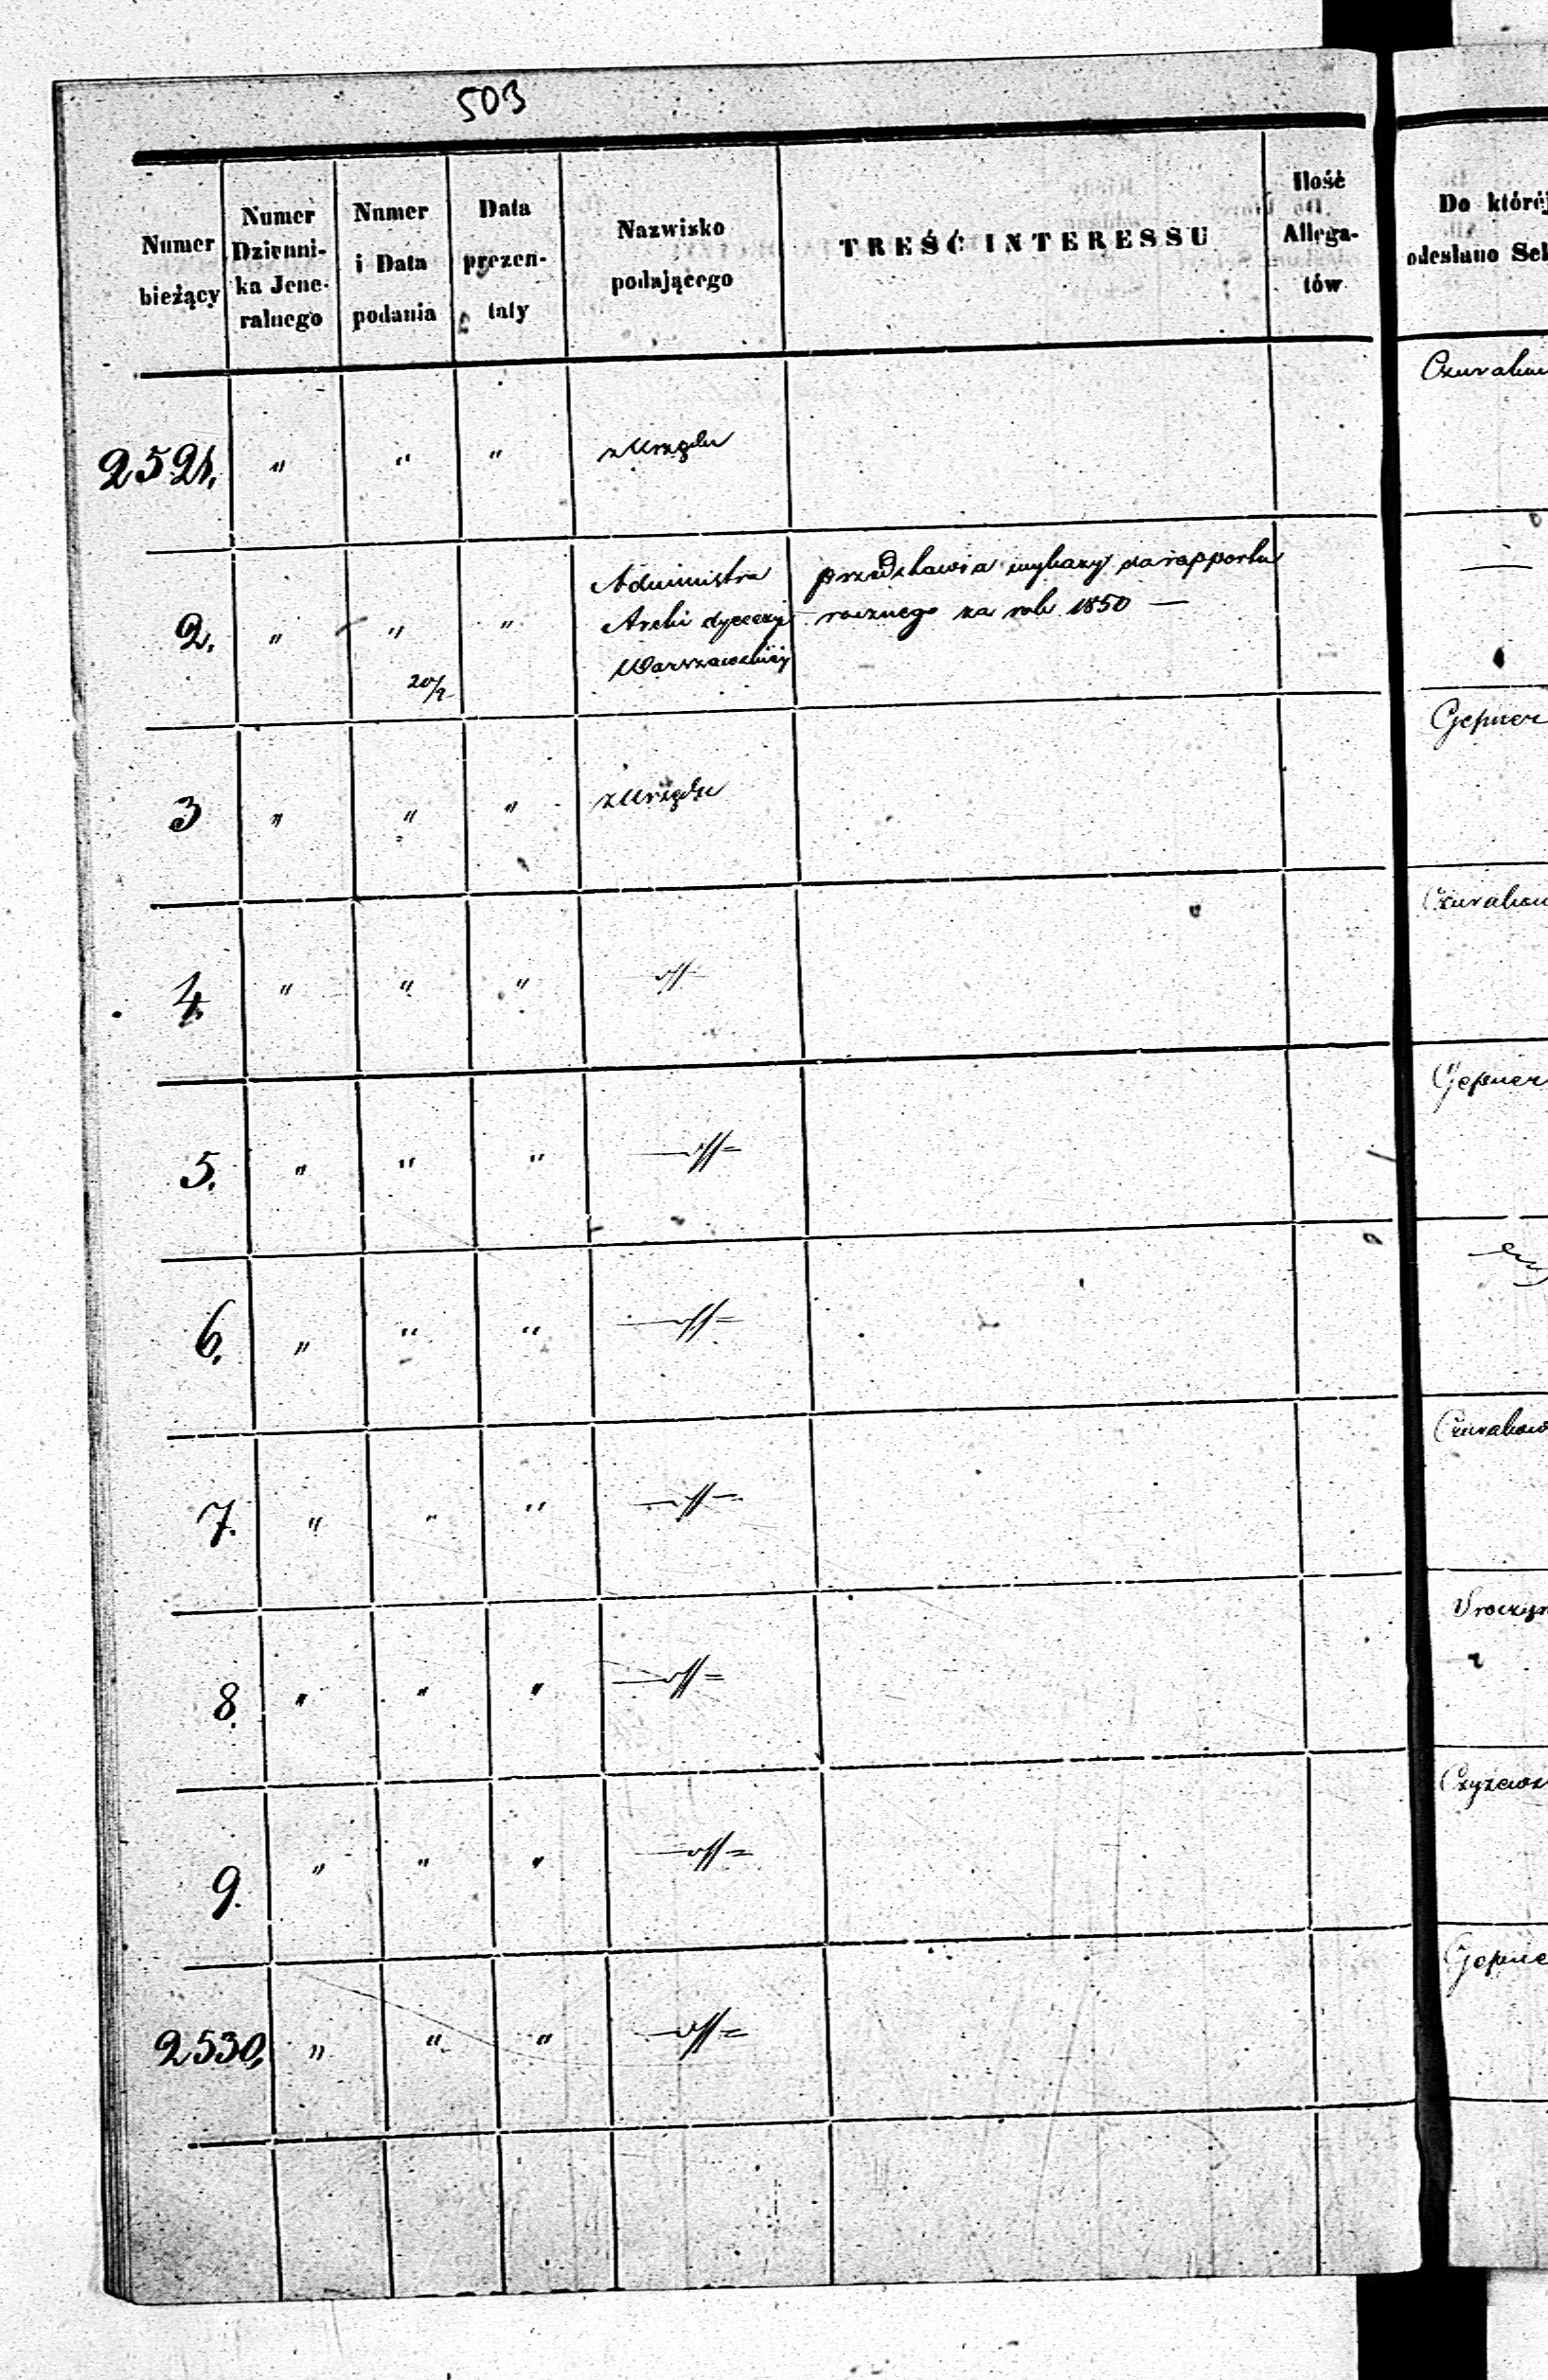 503
Numer bieżący
Numer Dzienni-
ka Jene-
ralnego
Numer i Data podania
Data prezen-
taty
Nazwisko podającego
TREŚĆ INTERESSU
Ilość Allega-
tów
Do któréj
odesłano Sek
2521. " " " z Urzędu
2. " " 20/2 "
Administra
Archi dyecezyi
Warszawskiéj
przedstawia wykazy do rapportu
rocznego za rok 1850 —
—
3 " " " z Urzędu
Gepner
4. " " " —//—
5. " " " —//=
Gepner
6. " " " —//=
7. " " " —//—
8. " " " —//=
9. " " " —//=
2530. " " " —//=